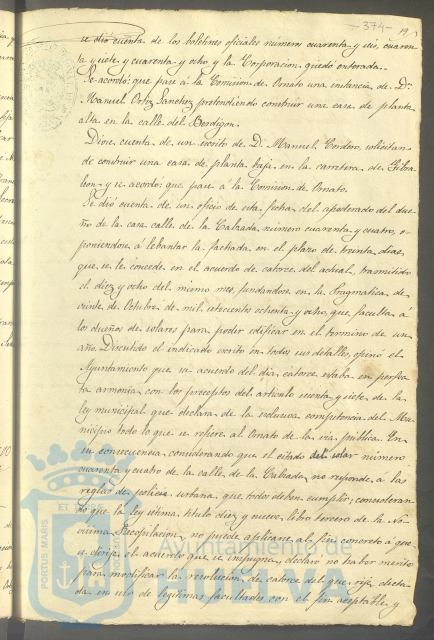 -374-
19
se dió cuenta de los boletines oficiales números cuarenta y seis, cuaren
ta y siete y cuarenta y ocho y la Corporacion quedó enterada.
Se acordó: que pase á la Comision de Ornato una instancia de D.
Manuel Ortiz Sanchez pretendiendo construir una casa de planta
alta en la calle del Berdigon.
Dióse cuenta de un escrito de D. Manuel Cordero, solicitan-
do construir una casa de planta baja en la carretera de Gibra
leon y se acordó: que pase á la Comision de Ornato.
Se dió cuenta de un oficio de esta fecha del apoderado del due-
ño de la casa calle de la Calzada, número cuarenta y cuatro, o-
poniendose á lebantar la fachada en el plazo de treinta dias,
que se le concede en el acuerdo de catorce del actual, trasmitido
el diez y ocho del mismo mes, fundandose en la Pragmatica de
veinte de Octubre de mil setecientos ochenta y ocho, que faculta á
los dueños de solares para poder edificar en el termino de un
año. Discutido el indicado escrito en todos sus detalles, opinó el
Ayuntamiento que su acuerdo del dia catorce estaba en perfec
ta armonia con los preceptos del articulo setenta y siete de la
ley municipal que declara de la esclusiva competencia del Mu-
nicipio todo lo que se refiere al Ornato de la via publica. En
su consecuencia considerando que el citado del solar número
cuarenta y cuatro de la calle de la Calzada no responde á las
reglas de policia urbana que todos deben cumplir; consideran
do que la ley setima, titulo diez y nueve, libro tercero de la No-
visima Recopilacion, no puede aplicarse al fin concreto á que
se dirije el acuerdo que se impugna, declaró no haber merito
para modificar la resolucion de catorce del que rije, dicta-
da en uso de legitimas facultades con el fin aceptable y
Ayuntamiento de
HUELVA
PORTUS MARIS ET